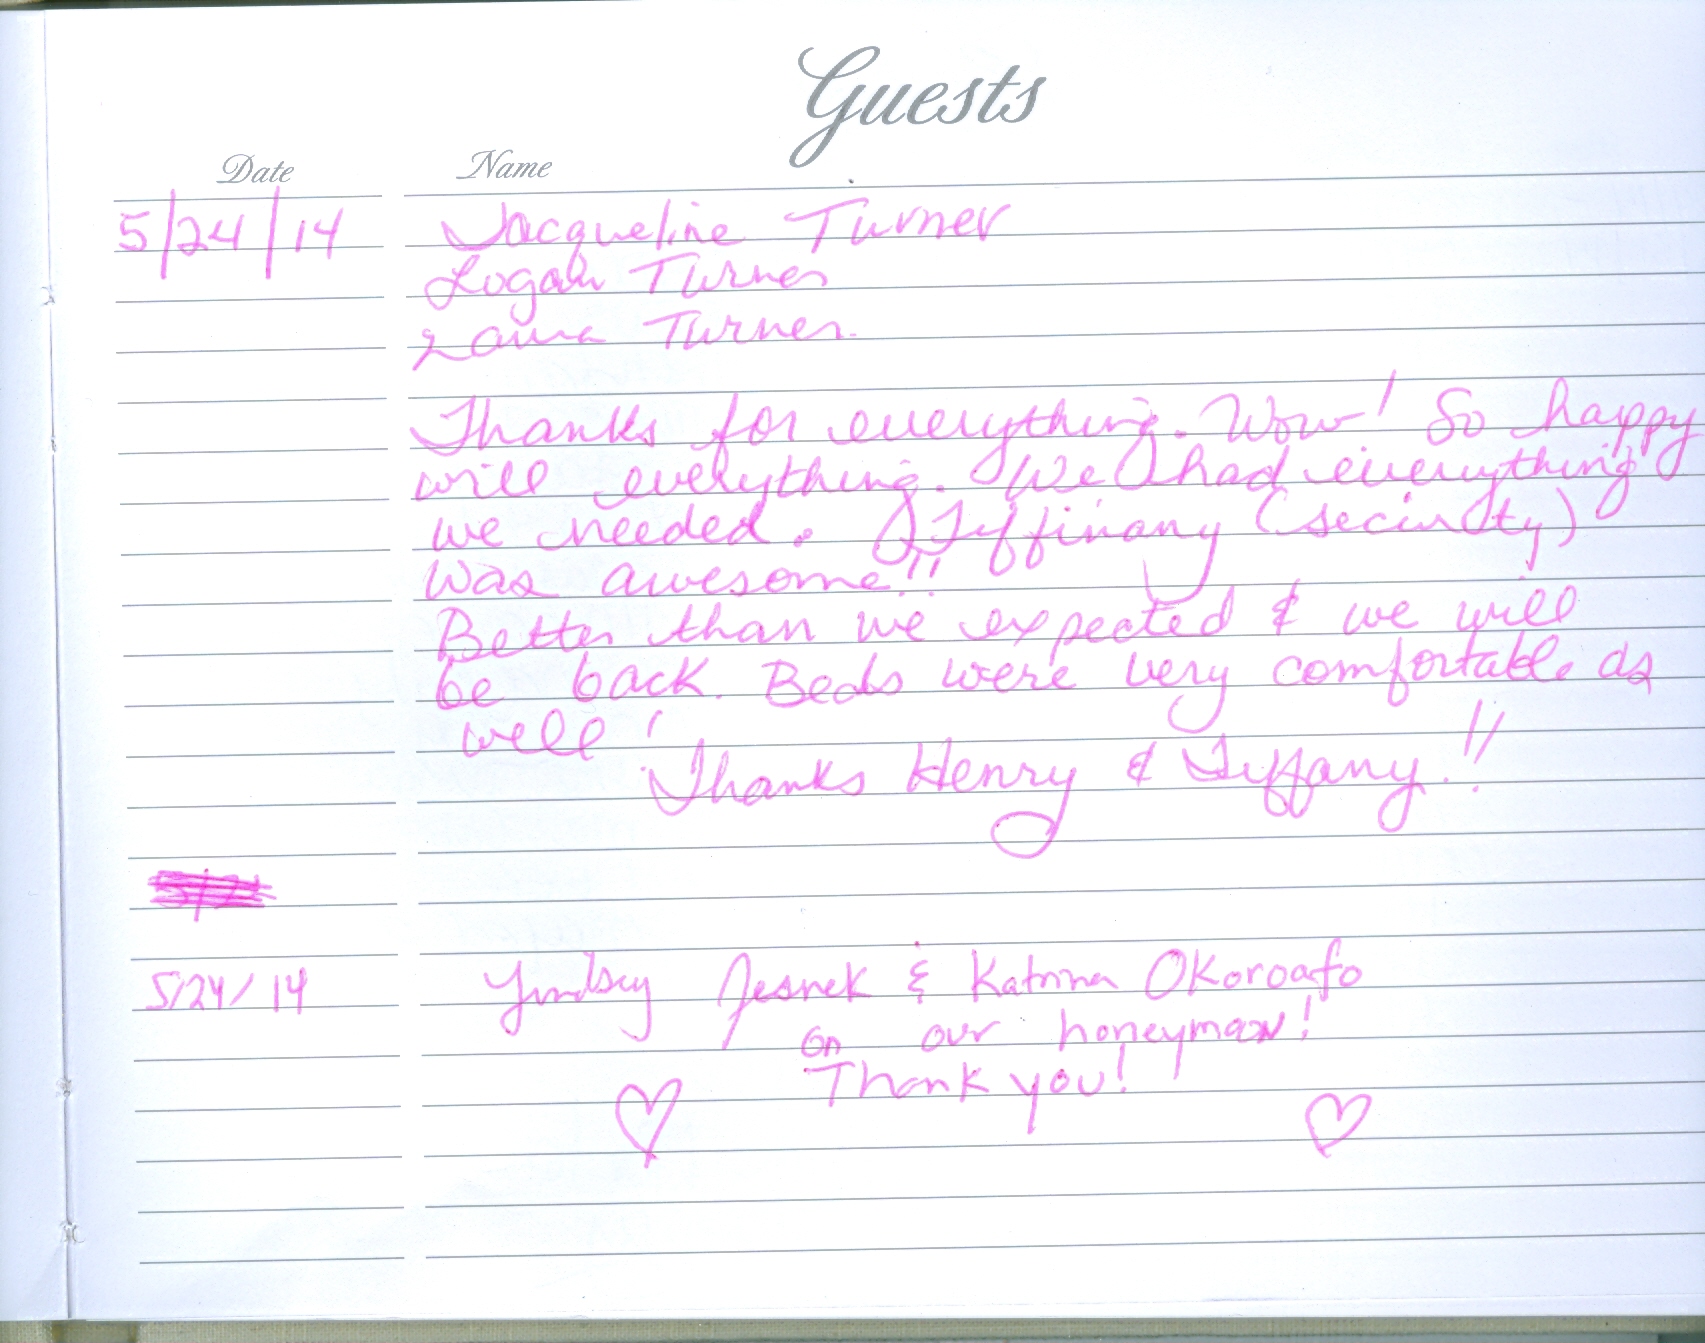 Guests
Date Name
5/24/14 Jacqueline Turner
Logan Turner
Turner.
Thanks for everything. Wow! So happy
will everything. We had everything
we needed. Tiffinany (security)
was awesome!!
Better than we expected & we will
be back. Beds were very comfortable as
well!
Thanks Henry & Tiffany.!!
5/24/14 Lyndsey Jesnek & Katrina Okoroafo
on our honeymoon!
Thank you!